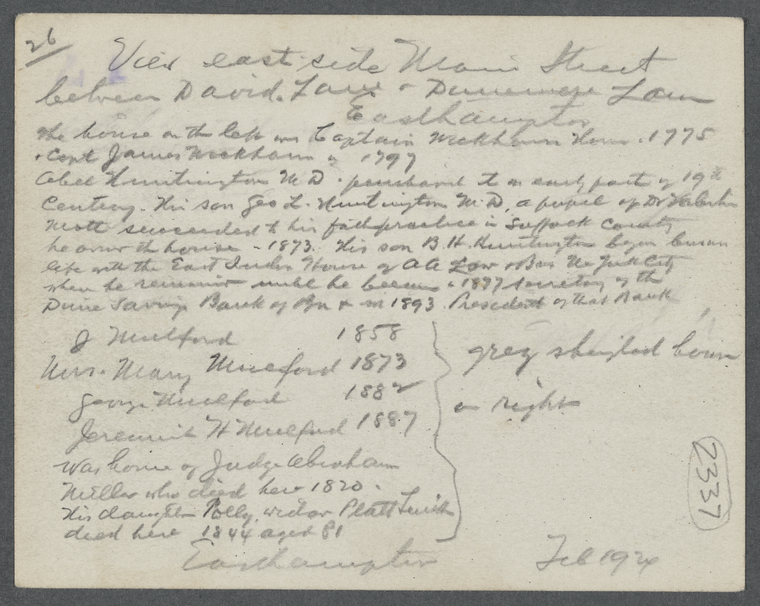 26
View east side Main Street
between David. Lane & Dunemere Lane
Easthampton
The house on the left was Captain Wickham Home. 1775
& Capt James Wickham 1797
Abel Huntington M.D. purchased it in early part of 19th
Century. His son Geo L. Huntington M.D, a pupil of Dr Valentine
Mott succeeded to his fath practice in Suffolk County
he owned the house - 1873. His son B. H. Huntington began business
life with the East India House of A A Low & Bros New York City
where he remained until he became 1877 Secretary of the
Dime Savings Bank of Bkn & in 1893 President of that Bank
J Mulford 1858
Mrs. Mary Mulford 1873
George Mulford 1882
Jeremiah H Mulford 1887
grey shingled house
on right
was home of Judge Abraham
Miller who died here 1820.
His daughter Polly, widow Platt Smith
died here 1844 aged 81
Easthampton Feb 192
2337